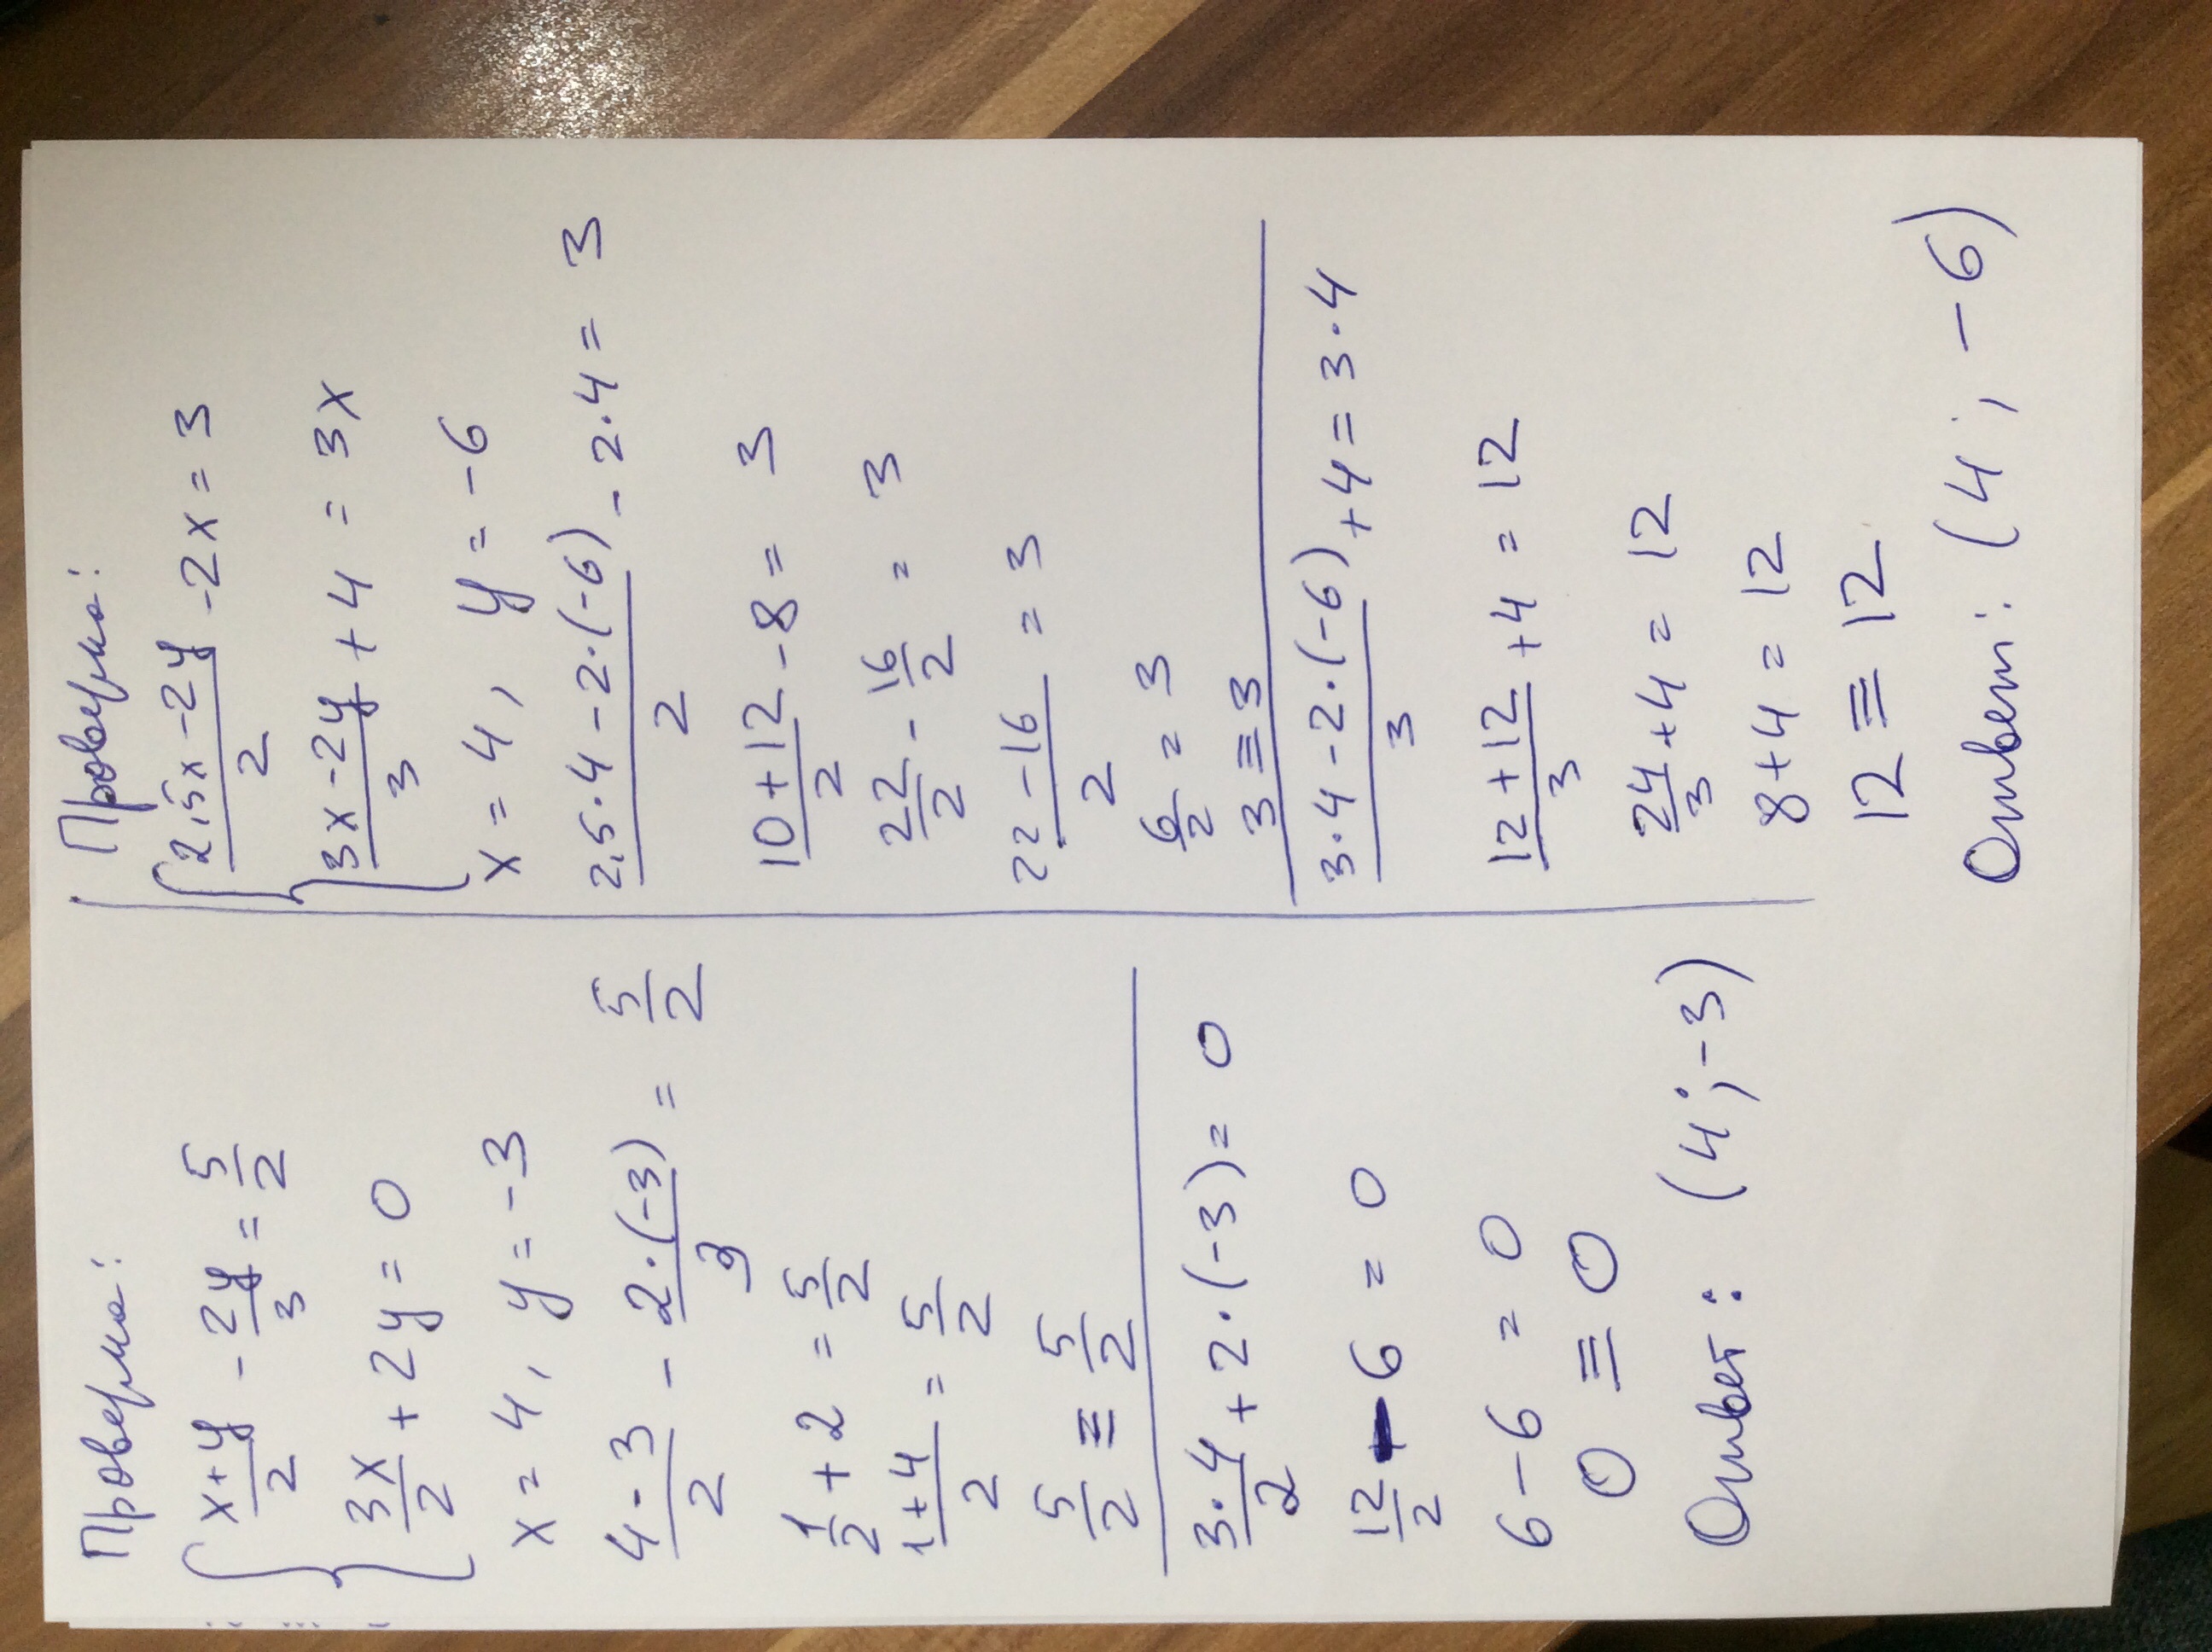 Проверка:
{ x+y/2 - 2y/3 = 5/2
3x/2 + 2y = 0
x = 4, y = -3
4-3/2 - 2·(-3)/3 = 5/2
1/2 + 2 = 5/2
1+4/2 = 5/2
5/2 ≡ 5/2
3·4/2 + 2·(-3) = 0
12/2 - 6 = 0
6 - 6 = 0
0 ≡ 0
Ответ: (4; -3)
Проверка:
{ 2,5x - 2y/2 - 2x = 3
3x - 2y/3 + 4 = 3x
x = 4, y = -6
2,5·4 - 2·(-6)/2 - 2·4 = 3
10+12/2 - 8 = 3
22/2 - 16/2 = 3
22-16/2 = 3
6/2 = 3
3 ≡ 3
3·4 - 2·(-6)/3 + 4 = 3·4
12+12/3 + 4 = 12
24/3 + 4 = 12
8 + 4 = 12
12 ≡ 12
Ответ: (4; -6)